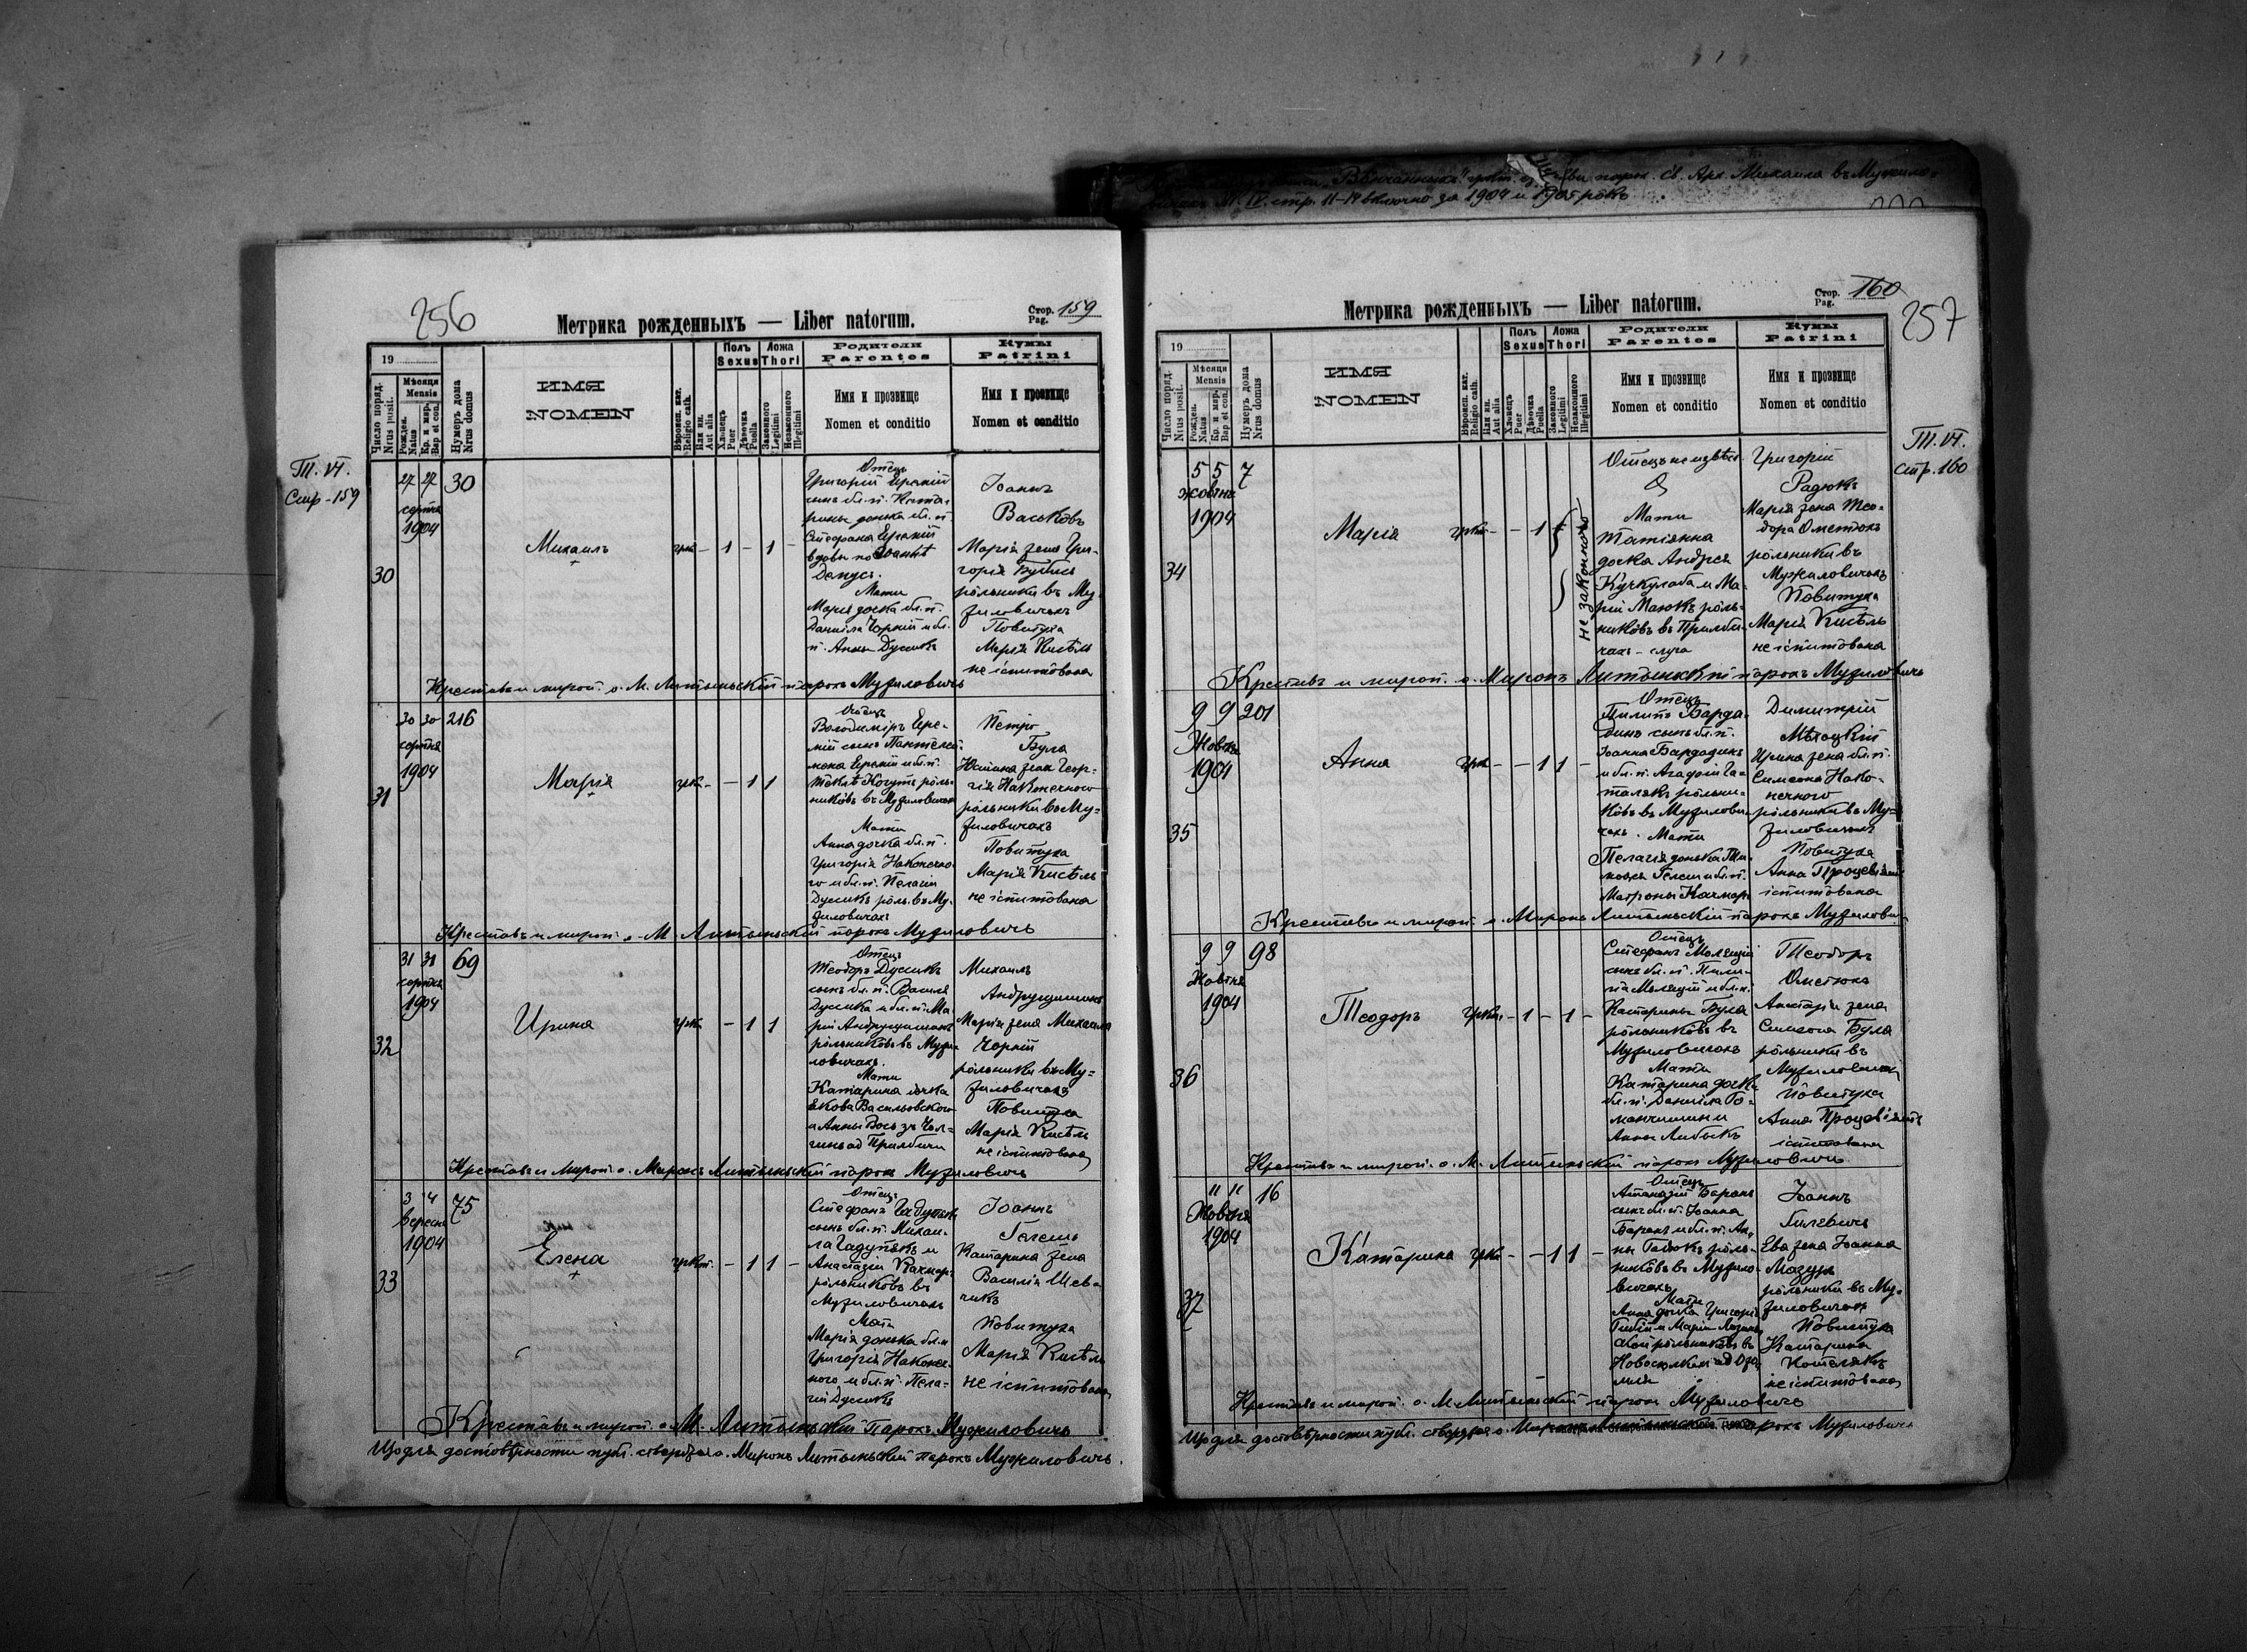 "Вѣнчанныхъ" парох. св. Арх. Михаила въ Мужило-
стр. 11-14 включно за 1904 и 1905 рокъ
256
Метрика рожденныхъ — Liber natorum.
Стор. 159
Pag.
19
Число поряд.
Nrus posit.
Мѣсяця
Mensis
Рожден.
Natus
Кр. и мѵр.
Bap et con.
Нумеръ дома
Nrus domus
ИМЯ
NOMEN
Вѣроисп. кат.
Religio cath.
Или ин.
Aut alia
Полъ
Sexus
Хлопецъ
Puer
Дѣвочка
Puella
Ложа
Thori
Законного
Legitimi
Незаконного
Illegitimi
Родители
Parentes
Имя и прозвище
Nomen et conditio
Кумы
Patrini
Имя и прозвище
Nomen et conditio
Т. VI.
Стр - 159
30
27 27
серпня
1904
30
Михаилъ
грк - 1 - 1 -
Отець
Григорій
сынъ бл. п. Ката-
рины донька бл. п.
Стефана
вдовы по Іоаннѣ
Мати
Марія дочка бл. п.
Даніила Чорній и бл.
п. Анны Дусикъ
Іоаннъ
Васьковъ
Марія жена Гри-
горія
рôльники въ Му-
жиловичахъ
Повитуха
Марія Кисѣль
не іспитована
Крестивъ и миров. о. М. Литыньскій парохъ Мужиловичъ
31
30 30
серпня
1904
216
Марія
грк - - 1 1
Отець
Володимиръ
сынъ Пантелей-
мона
Теклѣ Когутъ рôль-
никôвъ въ Мужиловичахъ
Мати
Анна дочка бл. п.
Григорія Наконечно-
го и бл. п. Пелагіи
Дусикъ рôль. въ Му-
жиловичахъ
Петро
Була
Юстина жена Геор-
гія Наконечного
рôльники въ Му-
жиловичахъ
Повитуха
Марія Кисѣль
не іспитована
Крестивъ и миров. о. М. Литыньскій парохъ Мужиловичъ
32
31 31
серпня
1904
69
Ирина
грк - 1 1
Отець
Теодоръ Дусикъ
сынъ бл. п. Василя
Дусика и бл. п. Ма-
ріи Андрущишакъ
рôльникôвъ въ Мужи-
ловичахъ.
Мати
Катарина дочка
Якова Васильовского
и Анны
Прилбичи
Михаилъ
Андрущишакъ
Марія жена Михаила
Чорній
рôльники въ Му-
жиловичахъ
Повитуха
Марія Кисѣль
не іспитована
Крестивъ и миров. о. Миронъ Литыньскій парохъ Мужиловичъ
33
3 4
вересня
1904
75
Елена
грк. - 1 1 -
Отець
Стефанъ Гадупякъ
сынъ бл. п. Михаи-
ла Гадупякъ и
Анастазіи Качмаръ
рôльникôвъ въ
Мужиловичахъ
Мати
Марія донька бл. п.
Григорія Наконеч-
ного и бл. п. Пела-
гіи Дусикъ
Іоаннъ
Гелешъ
Катарина жена
Василія Шев-
чикъ
Повитуха
Марія Кисѣль
не іспитована
Крестивъ и миров. о. М. Литыньскій Парохъ Мужиловичъ
Що для достовѣрности публ. стверджаю о. Миронъ Литыньскій парохъ Мужиловичъ.
Метрика рожденныхъ — Liber natorum.
Стор. 160
Pag.
257
19
Число поряд.
Nrus posit.
Мѣсяця
Mensis
Рожден.
Natus
Кр. и мѵр.
Bap et con.
Нумеръ дома
Nrus domus
ИМЯ
NOMEN
Вѣроисп. кат.
Religio cath.
Или ин.
Aut alia
Полъ
Sexus
Хлопецъ
Puer
Дѣвочка
Puella
Ложа
Thori
Законного
Legitimi
Незаконного
Illegitimi
Родители
Parentes
Имя и прозвище
Nomen et conditio
Кумы
Patrini
Имя и прозвище
Nomen et conditio
Т. VI.
стр. 160
34
5 5
жовтня
1904
7
Марія
грк - - 1
не законного
Отець неизвѣст.
Мати
Татіянна
дочка Андрея
Кучкулаба и Ма-
ріи Маюкъ рôль-
никôвъ въ Прилби-
чахъ - слуга
Григорій
Радюкъ
Марія жена Тео-
дора Ометюкъ
рôльники въ
Мужиловичахъ
Повитуха
Марія Кисѣль
не іспитована
Крестивъ и миров. о. Миронъ Литыньскій парохъ Мужиловичъ
35
9 9
Жовтня
1904
201
Анна
грк - - 1 1 -
Отець
Пилипъ Барда-
динъ сынъ бл. п.
Іоанна Бардадинъ
и бл. п. Агафіи
рôльни-
кôвъ въ Мужилови-
чахъ. Мати
Пелагія донька Ти-
мка Гелеш и бл. п.
Матроны Качмаръ
Димитрій
Мѣлоцкій
Ирина жена бл. п.
Симеона Нако-
нечного
рôльники въ Му-
жиловичахъ
Повитуха
Анна Процевіятъ
іспитована
Крестивъ и миров. о. Миронъ Литыньскій парохъ Мужилович
36
9 9
Жовтня
1904
98
Теодоръ
грк. - 1 - 1 -
Отець
Стефанъ Моляцкій
сынъ бл. п. Пили-
па Моляцкій и бл. п.
Катарины Була
рôльникôвъ въ
Мужиловичахъ
Мати
Катарина дочка
бл. п. Даніила Ро-
манчишини
Анны Либыкъ
Теодоръ
Ометюкъ
Анастазія жена
Симеона Була
рôльники въ
Мужиловичахъ
Повитуха
Анна Процевіятъ
іспитована
Крестивъ и миров. о. М. Литыньскій парохъ Мужиловичъ
37
11 11
Жовтня
1904
16
Катарина
грк - - 1 1 -
Отець
Атаназій Баранъ
сынъ бл. п. Іоанна
Баранъ и бл. п. Ан-
ны рôль-
никôвъ въ Мужило-
вичахъ
Мати
Анна дочка Григорія
и Маріи
рôльникôвъ въ
Новоселкахъ
Іоаннъ
Гилевичъ
Ева жена Іоанна
Мазуръ
рôльники въ Му-
жиловичахъ
Повитуха
Катарина
Котелякъ
не іспитована
Крестивъ и миров. о. М. Литыньскій парохъ Мужиловичъ
Що для достовѣрности публ. стверджаю о. Миронъ Литыньскій парохъ Мужиловичъ